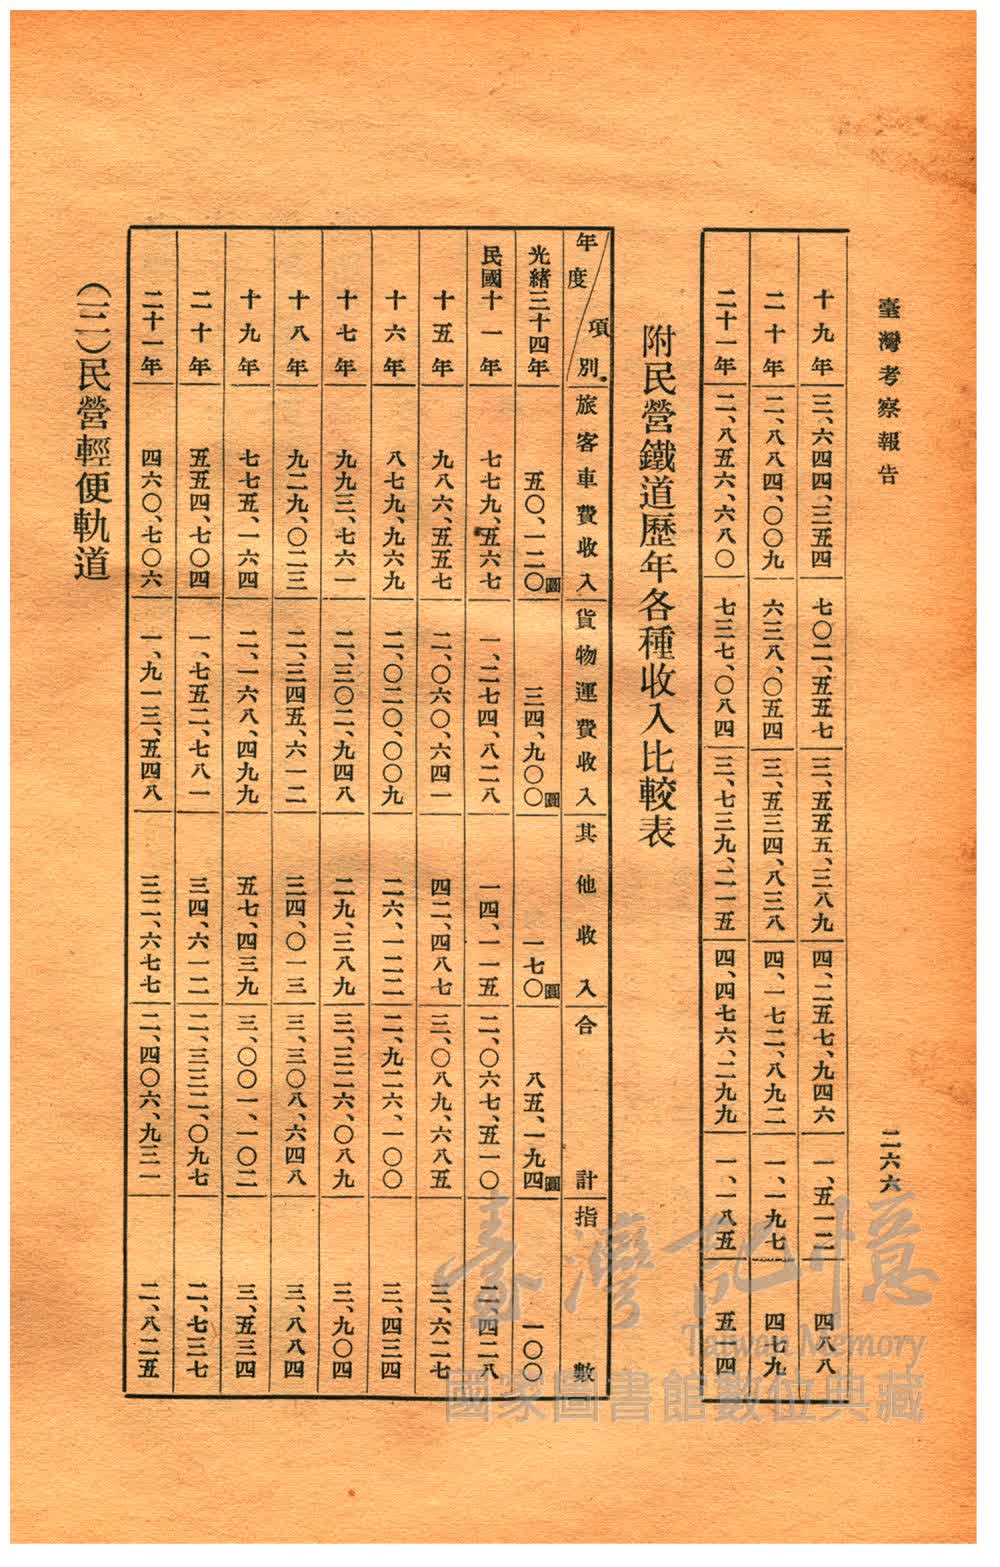 臺灣考察報告
二六六
十九年 三、六四四、三五四 七〇二、五五七 三、五五五、三八九 四、二五七、九四六 一、五一二 四八八
二十年 二、八八四、〇〇九 六三八、〇五四 三、五三四、八三八 四、一七二、八九二 一、一九七 四七九
二十一年 二、八五六、六八〇 七三七、〇八四 三、七三九、二一五 四、四七六、二九九 一、一八五 五一四
附民營鐵道歷年各種收入比較表
年度 項別 旅客車費收入 貨物運費收入 其他收入 合計 指數
光緒三十四年 五〇、一二〇圓 三四、九〇〇圓 一七〇圓 八五、一九四圓 一〇〇
民國十一年 七七九、五六七 一、二七四、八二八 一四、一一五 二、〇六七、五一〇 二、四二八
十五年 九八六、五五七 二、〇六〇、六四一 四二、四八七 三、〇八九、六八五 三、六二七
十六年 八七九、九六九 二、〇二〇、〇〇九 二六、一二二 二、九二六、一〇〇 三、四三四
十七年 九九三、七六一 二、三〇二、九四八 二九、三八九 三、三二六、〇八九 三、九〇四
十八年 九二九、〇二三 二、三四五、六一二 三四、〇一三 三、三〇八、六四八 三、八八四
十九年 七七五、一六四 二、一六八、四九九 五七、四三九 三、〇〇一、一〇二 三、五三四
二十年 五五四、七〇四 一、七五二、七八一 三四、六一二 二、三三二、〇九七 二、七三七
二十一年 四六〇、七〇六 一、九一三、五四八 三二、六七七 二、四〇六、九三一 二、八二五
(三)民營輕便軌道
臺灣記憶
Taiwan Memory
國家圖書館數位典藏